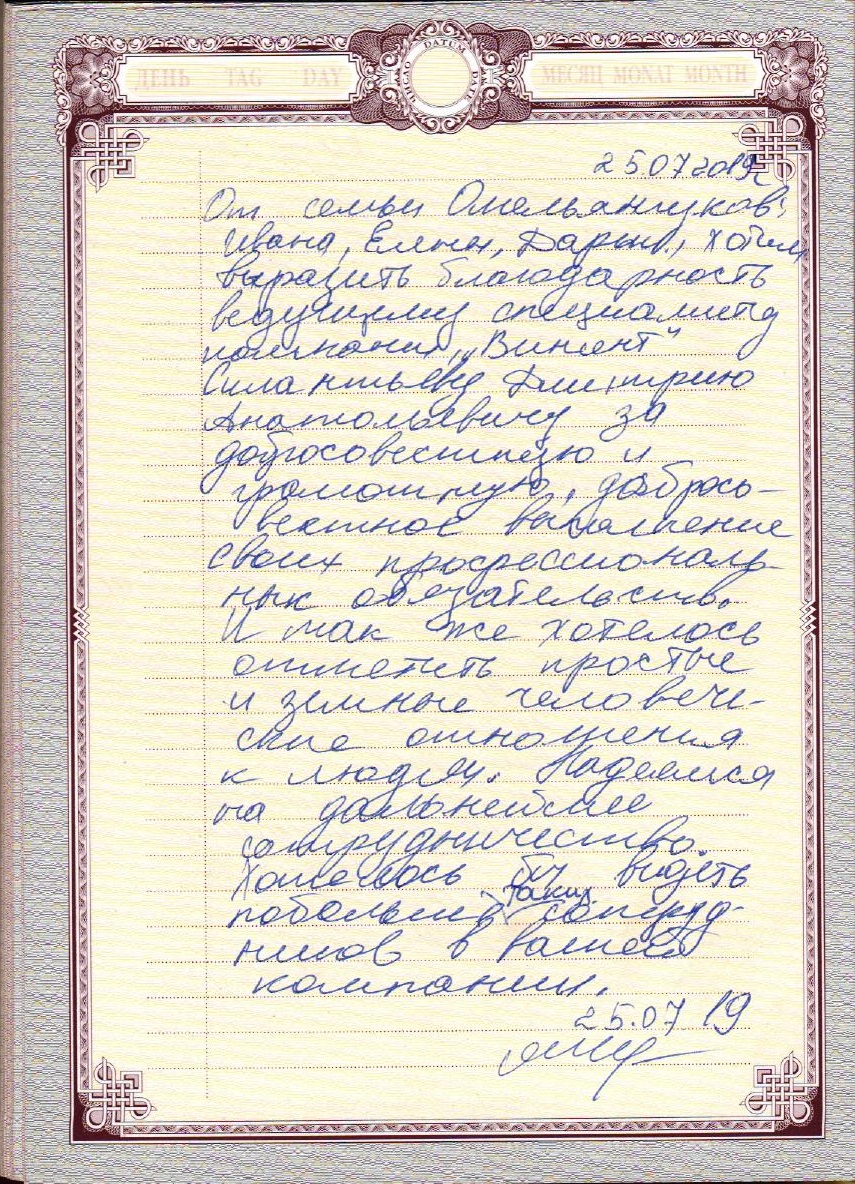 ДЕНЬ TAG DAY
ЧИСЛО DATUM DATE
МЕСЯЦ MONAT MONTH
25.07 2019г
От семьи Омельянчуков:
Ивана, Елены, Дарьи., хотим
выразить благодарность
ведущему специалисту
компании „Винсент"
Силантьеву Дмитрию
Анатольевичу за
добросовестную и
грамотную, добросо-
вестное выполнение
своих профессиональ-
ных обязательств.
И так же хотелось
отметить простые
и земные человече-
ские отношения
к людям. Надеемся
на дальнейшее
сотрудничество.
Хотелось бы видеть
побольше таких сотруд-
ников в вашей
компании.
25.07 19